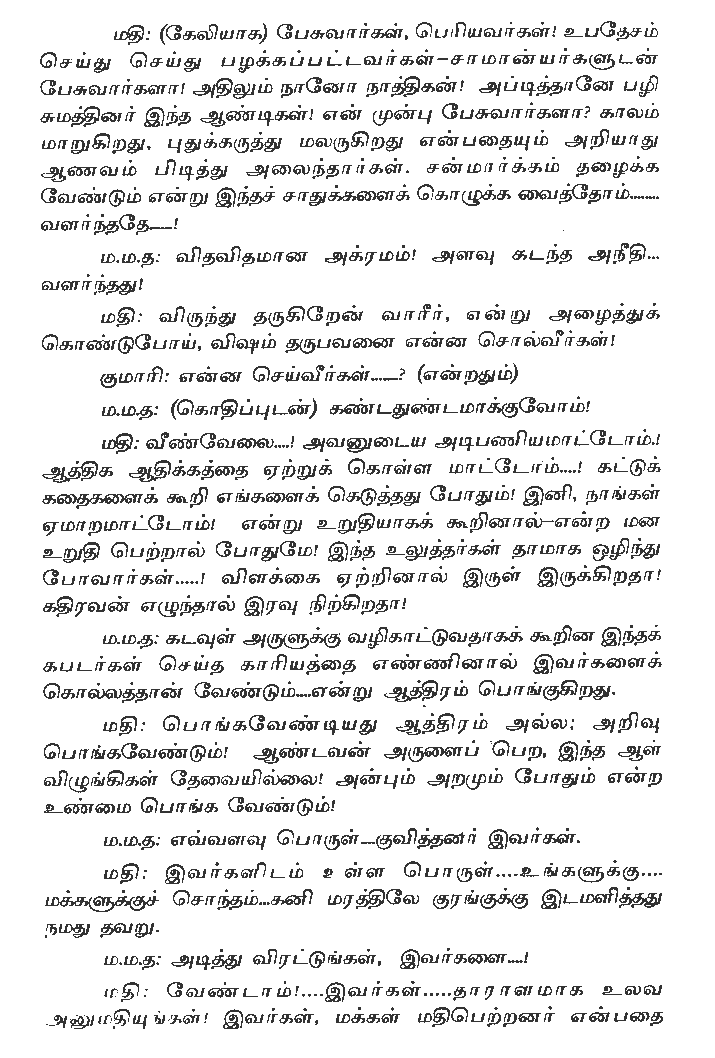 மதி: (கேலியாக) பேசுவார்கள், பெரியவர்கள்! உபதேசம்
செய்து செய்து பழக்கப்பட்டவர்கள்—சாமான்யர்களுடன்
பேசுவார்களா! அதிலும் நானோ நாத்திகன்! அப்டித்தானே பழி
சுமத்தினர் இந்த ஆண்டிகள்! என் முன்பு பேசுவார்களா? காலம்
மாறுகிறது, புதுக்கருத்து மலருகிறது என்பதையும் அறியாது
ஆணவம் பிடித்து அலைந்தார்கள். சன்மார்க்கம் தழைக்க
வேண்டும் என்று இந்தச் சாதுக்களைக் கொழுக்க வைத்தோம்........
வளர்ந்ததே.....!
ம.ம.த: விதவிதமான அக்ரமம்! அளவு கடந்த அநீதி...
வளர்ந்தது!
மதி: விருந்து தருகிறேன் வாரீர், என்று அழைத்துக்
கொண்டுபோய், விஷம் தருபவனை என்ன சொல்வீர்கள்!
குமாரி: என்ன செய்வீர்கள்......? (என்றதும்)
ம.ம.த: (கொதிப்புடன்) கண்டதுண்டமாக்குவோம்!
மதி: வீண்வேலை....! அவனுடைய அடிபணியமாட்டோம்.!
ஆத்திக ஆதிக்கத்தை ஏற்றுக் கொள்ள மாட்டோம்....! கட்டுக்
கதைகளைக் கூறி எங்களைக் கெடுத்தது போதும்! இனி, நாங்கள்
ஏமாறமாட்டோம்! என்று உறுதியாகக் கூறினால்—என்ற மன
உறுதி பெற்றால் போதுமே! இந்த உலுத்தர்கள் தாமாக ஒழிந்து
போவார்கள்.....! விளக்கை ஏற்றினால் இருள் இருக்கிறதா!
கதிரவன் எழுந்தால் இரவு நிற்கிறதா!
ம.ம.த: கடவுள் அருளுக்கு வழிகாட்டுவதாகக் கூறின இந்தக்
கபடர்கள் செய்த காரியத்தை எண்ணினால் இவர்களைக்
கொல்லத்தான் வேண்டும்....என்று ஆத்திரம் பொங்குகிறது.
மதி: பொங்கவேண்டியது ஆத்திரம் அல்ல; அறிவு
பொங்கவேண்டும்! ஆண்டவன் அருளைப் பெற, இந்த ஆள்
விழுங்கிகள் தேவையில்லை! அன்பும் அறமும் போதும் என்ற
உண்மை பொங்க வேண்டும்!
ம.ம.த: எவ்வளவு பொருள்....குவித்தனர் இவர்கள்.
மதி: இவர்களிடம் உள்ள பொருள்....உங்களுக்கு....
மக்களுக்குச் சொந்தம்...கனி மரத்திலே குரங்குக்கு இடமளித்தது
நமது தவறு.
ம.ம.த: அடித்து விரட்டுங்கள், இவர்களை....!
மதி: வேண்டாம்!....இவர்கள்.....தாராளமாக உலவ
அனுமதியுங்கள்! இவர்கள், மக்கள் மதிபெற்றனர் என்பதை